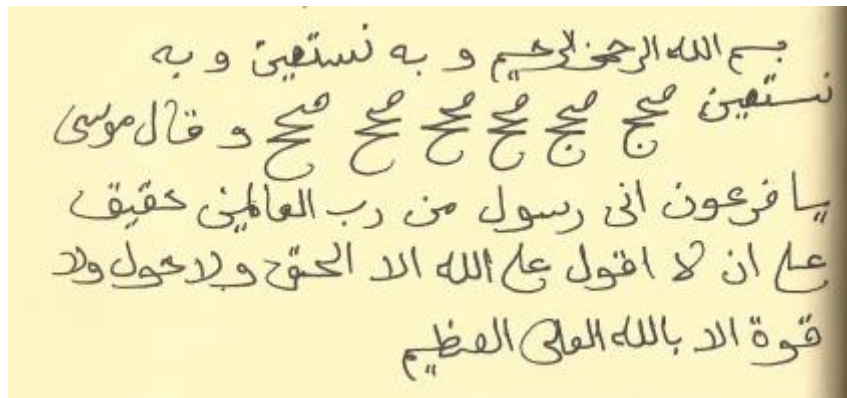 بسم الله الرحمن الرحيم و به نستعين و به
نستعين صحح صحح صحح صحح صحح صحح و قال موسى
يا فرعون انى رسول من رب العالمين حقيق
على ان لا اقول على الله الا الحق ولا حول ولا
قوة الا بالله العلى العظيم